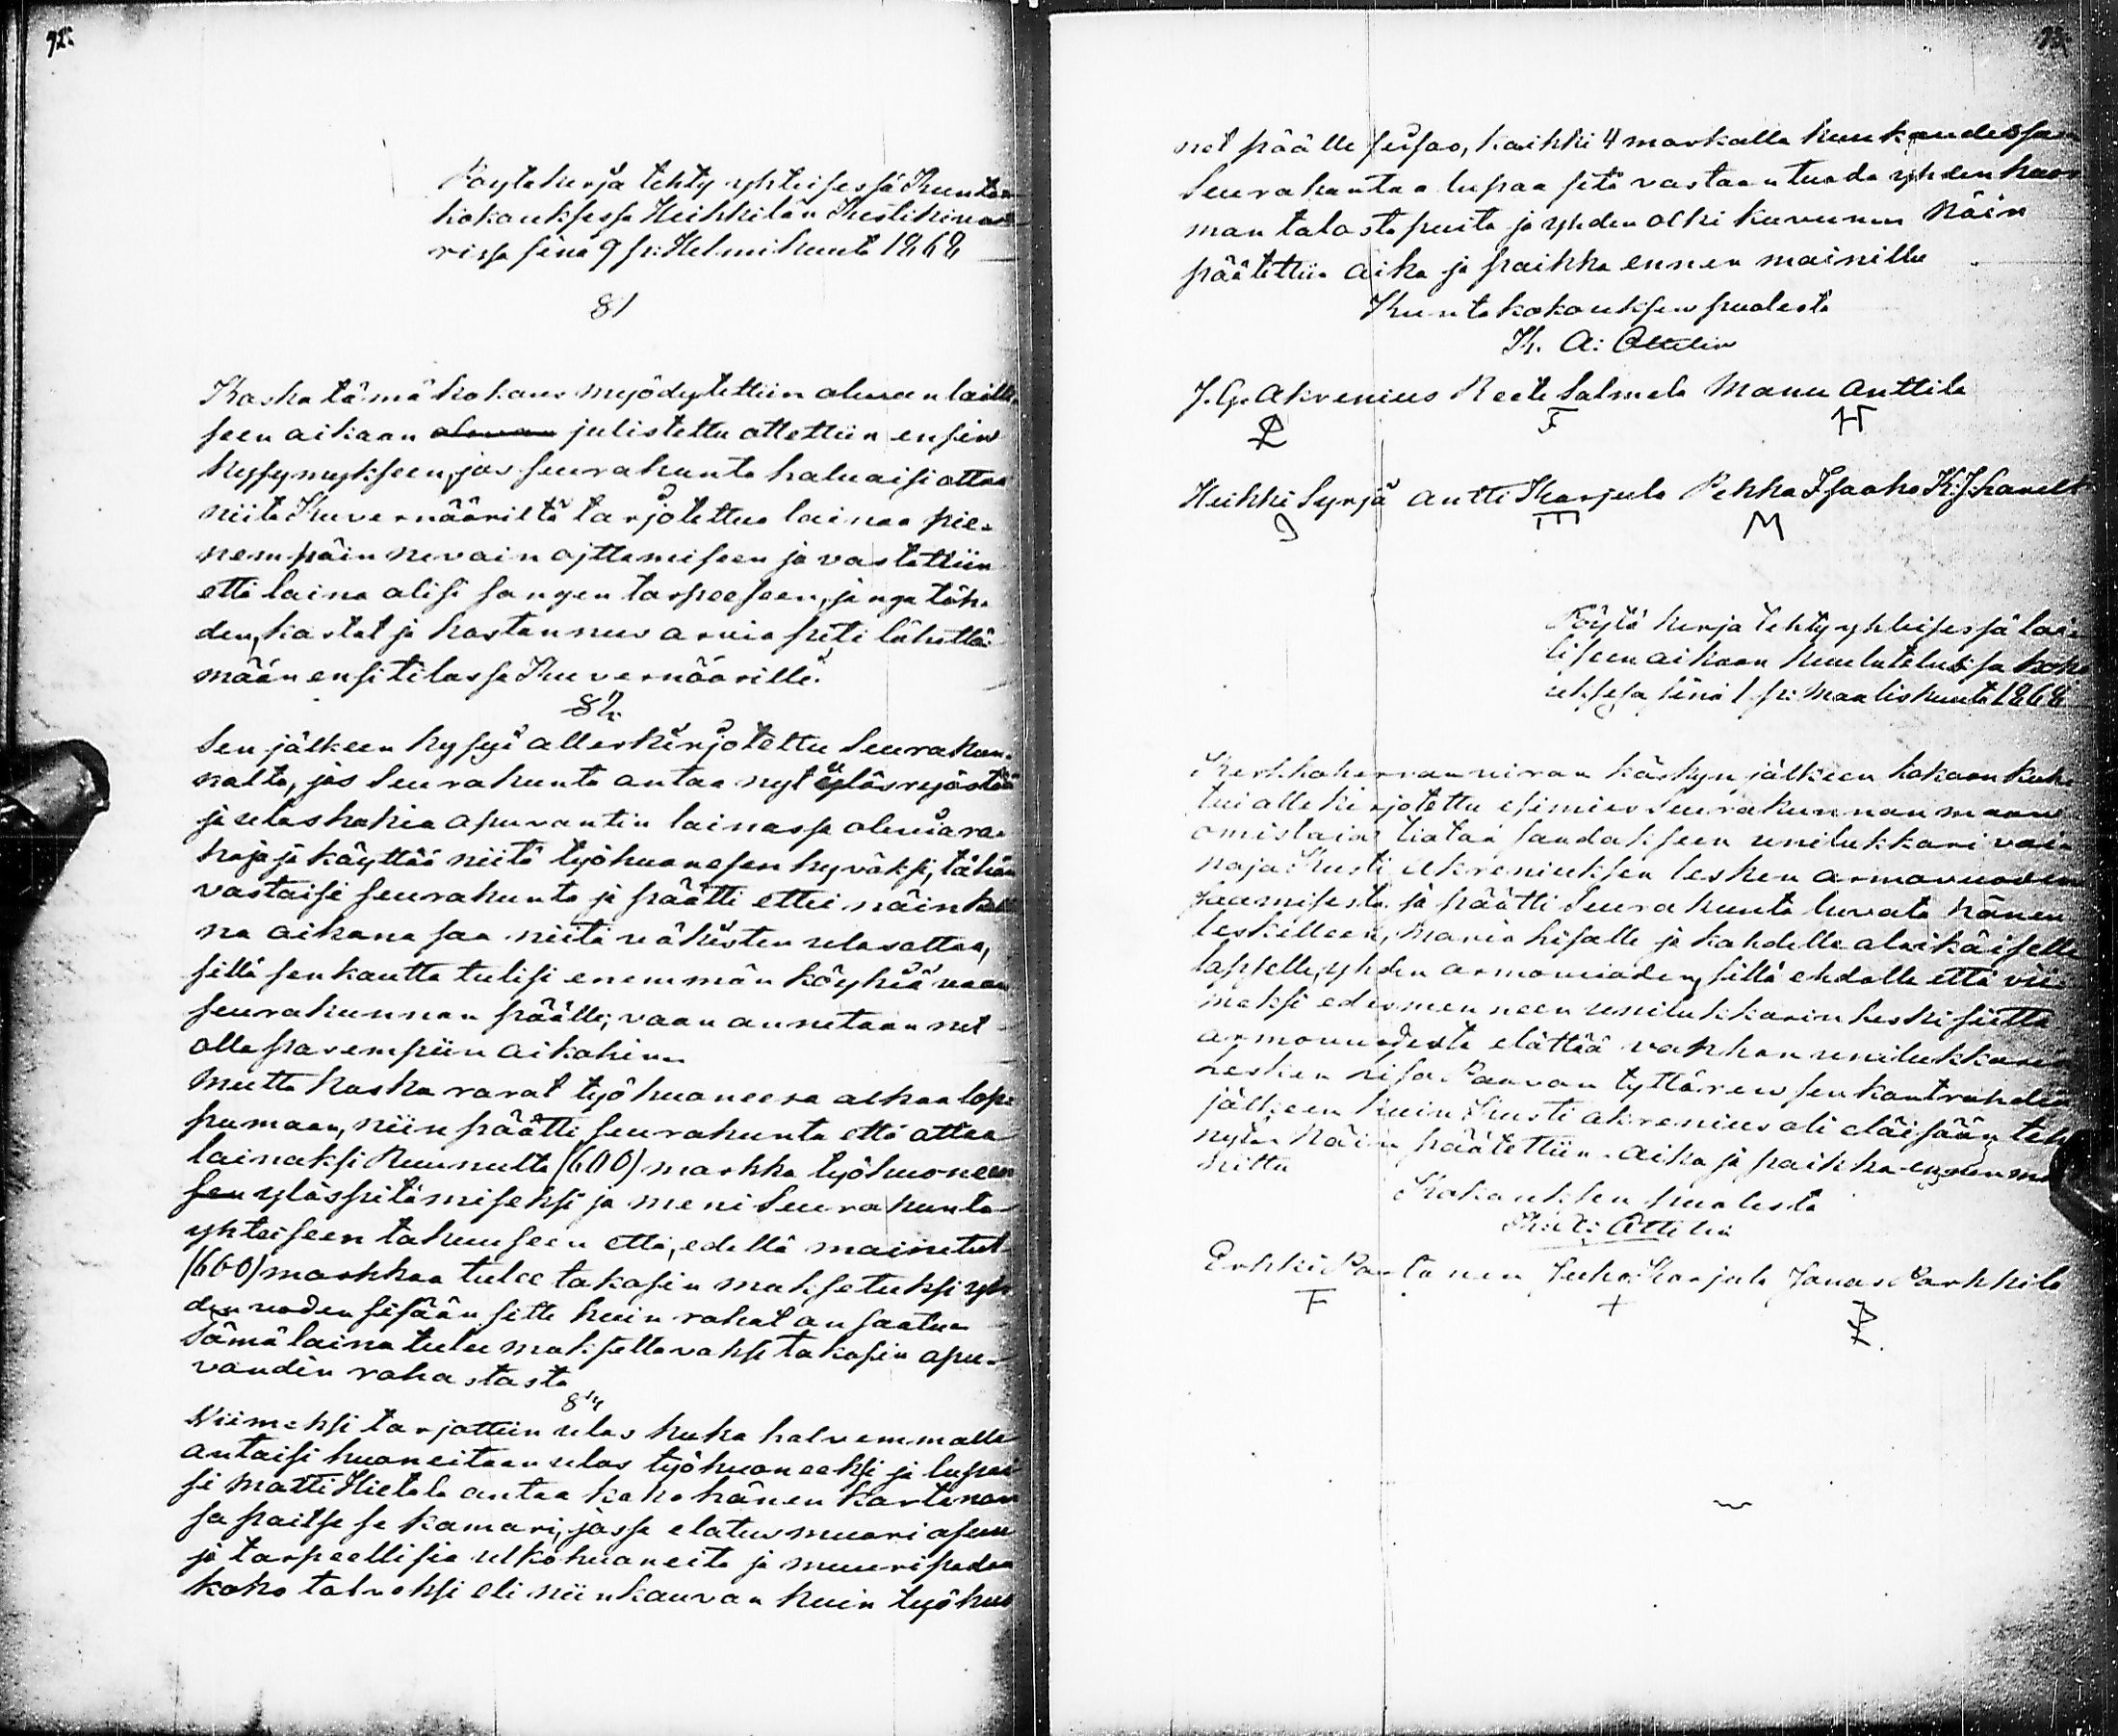 92:
Pöytäkirja tehty yhteisessä Kunta
kokouksessa Heikkilän Kestikieva
rissa sinä 9 p: Helmikuuta 1868
§1
Koska tämä kokous myödytettiin olevan lailli
seen aikaan olevan julistettu otettiin ensin
kysymykseen, jos seurakunta haluaisi ottaa
niitä Kuvernööriltä tarjotettua lainaa pie-
nempäin nevain ojttamiseen ja vastattiin
että laina olisi sangen tarpeeseen, jonga täh-
den, kastat ja kastannus arvio piti lähettä-
mään ensi tilassa Kuvernöörille.
§2.
Sen jälkeen kysyi allerkirjotettu Seurakun-
nalta, jos Seurakunta antaa nyt ylösryöstää
ja uloshakea apuvautin lainassa olevia ra-
hoja ja käyttää niitä työhuonesen hyväksi, tähän
vastaisi seurakunta ja päätti ettei näin ko
na aikana saa niitä väkisten ulosottaa,
sillä senkautta tulisi enemmän köyhiä vaan
seurakunnan päälle, vaan annetaan net
olla parempiin aikohin.
Mutta koska varat työhuoneesa alkaa lop-
pumaan, niin päätti seurakunta että ottaa
lainaksi Ruunulta (600) markka työhuoneen
sen ylöspitämiseksi ja meni Seurakunta
yhteiseen takuuseen että, edellä mainitut
(600) markkaa tulee takasin maksetuksi yh
den vuoden sisään siitä kuin rahat on saatu.
Tämä laina tulee maksettavaksi takasin apu-
vaudin rahastosta
§4
Viimeksi tarjottiin ulos kuka halvemmalle
antaisi huoneitaan ulos työhuoneeksi ja lupai
si Matti Hietala antaa koko hänen kartanon
sa paitse se kamari, jossa elatusmuori asuu
ja tarpeellisia ulkohuoneita ja muuripadan
koko talveksi eli niinkauvan kuin työhuo
net päälle seisoo, kaikki 4 markalla kuukaudessa
Seurakuntaa lupaa sitä vastaan tuoda yhden kuor
man talosta puita ja yhden olki kuvuun Näin
päätettiin aika ja paikka ennen mainittu
Kunta kokouksen puolesta
K. A: Ottelin
J. G. Akrenius Reete Salmela Manu Anttila
Heikki Syrjä Antti Karjula Pekka Isaako K: J. Karell
Pöytä kirja tehty yhteisessä lai-
liseen aikaan kuulutetusa koko
uksesa sinä 1 p: Maaliskuuta 1868
Kirkkoherran viran käskyn jälkeen kokoon kuhu
tui allekirjotettu esimies Seurakunnan maan
omistajat tietää saadakseen unilukkari vai-
naja Kusti Akreniuksen lesken armovuoden
saamisesta ja päätti Seurakunta luvata hänen
leskelleen, Maria Kisalle ja kahdelle alaikäiselle
lapselle, yhden armovuoden, sillä ehdolla että vii-
meksi edesmenneen unilukkarin leski siitä
armovuodesta elättää vanhan unilukkarin
lesken Lisa Paavon tyttären sen kontrahdin
jälkeen kuin Kusti Akrenius oli eläisään teh
nyt. Näin päätettiin. aika ja paikka ennen mai
nittu
Kokouksen puolesta
K: A: Ottelin
Erkki Partanen Juho Karjula Jonas Parkkila